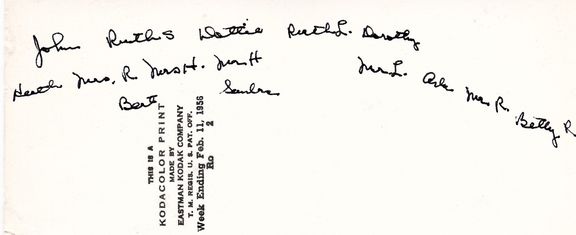 John Ruth S Dottie Ruth L. Dorothy
Mrs. R. Mrs H. Mr H Mr L. Mrs R. Betty R
Bert Sandra
THIS IS A
KODACOLOR PRINT
MADE BY
EASTMAN KODAK COMPANY
T. M. REGIS. U. S. PAT. OFF.
Week Ending Feb. 11, 1956
Ro 2